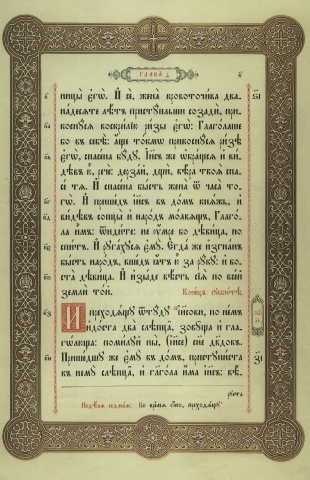 ГЛАВА
ницы єгѡ̀. И҆ сѐ, жена̀ кровоточи́ва два-
на́десяте лѣ́тъ пристꙋ́пльши созадѝ, при-
коснꙋ́сѧ воскри́лїю ри́зы є҆гѡ̀: Глаго́лаше
бо въ себѣ̀: а҆́ще то́кмѡ прикоснꙋ́сѧ ри́зѣ
є҆гѡ̀, спасе́на бꙋ́дꙋ. І҆и҃съ же ѡ҆бра́щсѧ и҆ ви́-
дѣвъ ю҆̀, речѐ: дерза́й, дщѝ, вѣ́ра твоѧ̀ спа-
се́ тѧ. И҆ спасе́на бы́сть жена̀ ѿ часа̀ то-
гѡ̀. И҆ прише́дъ і҆и҃съ въ до́мъ кнѧ́жь, и҆
ви́дѣвъ сопцы̀ и҆ наро́дъ мо́лвѧщь, Глаго́-
ла и҆̀мъ: ѿиди́те: не ᲂу҆́мре бо дѣви́ца, но
спи́тъ. И҆ рꙋга́хꙋсѧ є҆мꙋ̀. Є҆гда́ же и҆згна́нъ
бы́сть наро́дъ, вше́дъ ꙗ҆́тъ ю҆̀ за рꙋ́кꙋ: и҆ во-
ста̀ дѣви́ца. И҆ и҆зы́де вѣ́сть сїѧ̀ по все́й
землѝ то́й. Коне́цъ сꙋббѡ́тѣ.
И҆ преходѧ́щꙋ ѿтꙋ́дꙋ і҆и҃сови, по не́мъ
и҆до́ста два̀ слѣпца̑, зовꙋ̑ща и҆ гла-
гѡ́люща: поми́лꙋй ны̀, (і҆и҃се) сн҃е дв҃довъ.
Прише́дшꙋ же є҆мꙋ̀ въ до́мъ, пристꙋпи́ста
къ немꙋ̀ слѣпца̑, и҆ глаго́ла и҆́ма і҆и҃съ: вѣ́-
рꙋета
Недѣ́лѧ седма́ѧ: Во вре́мѧ ѻ҆́но, преходѧ́щꙋ